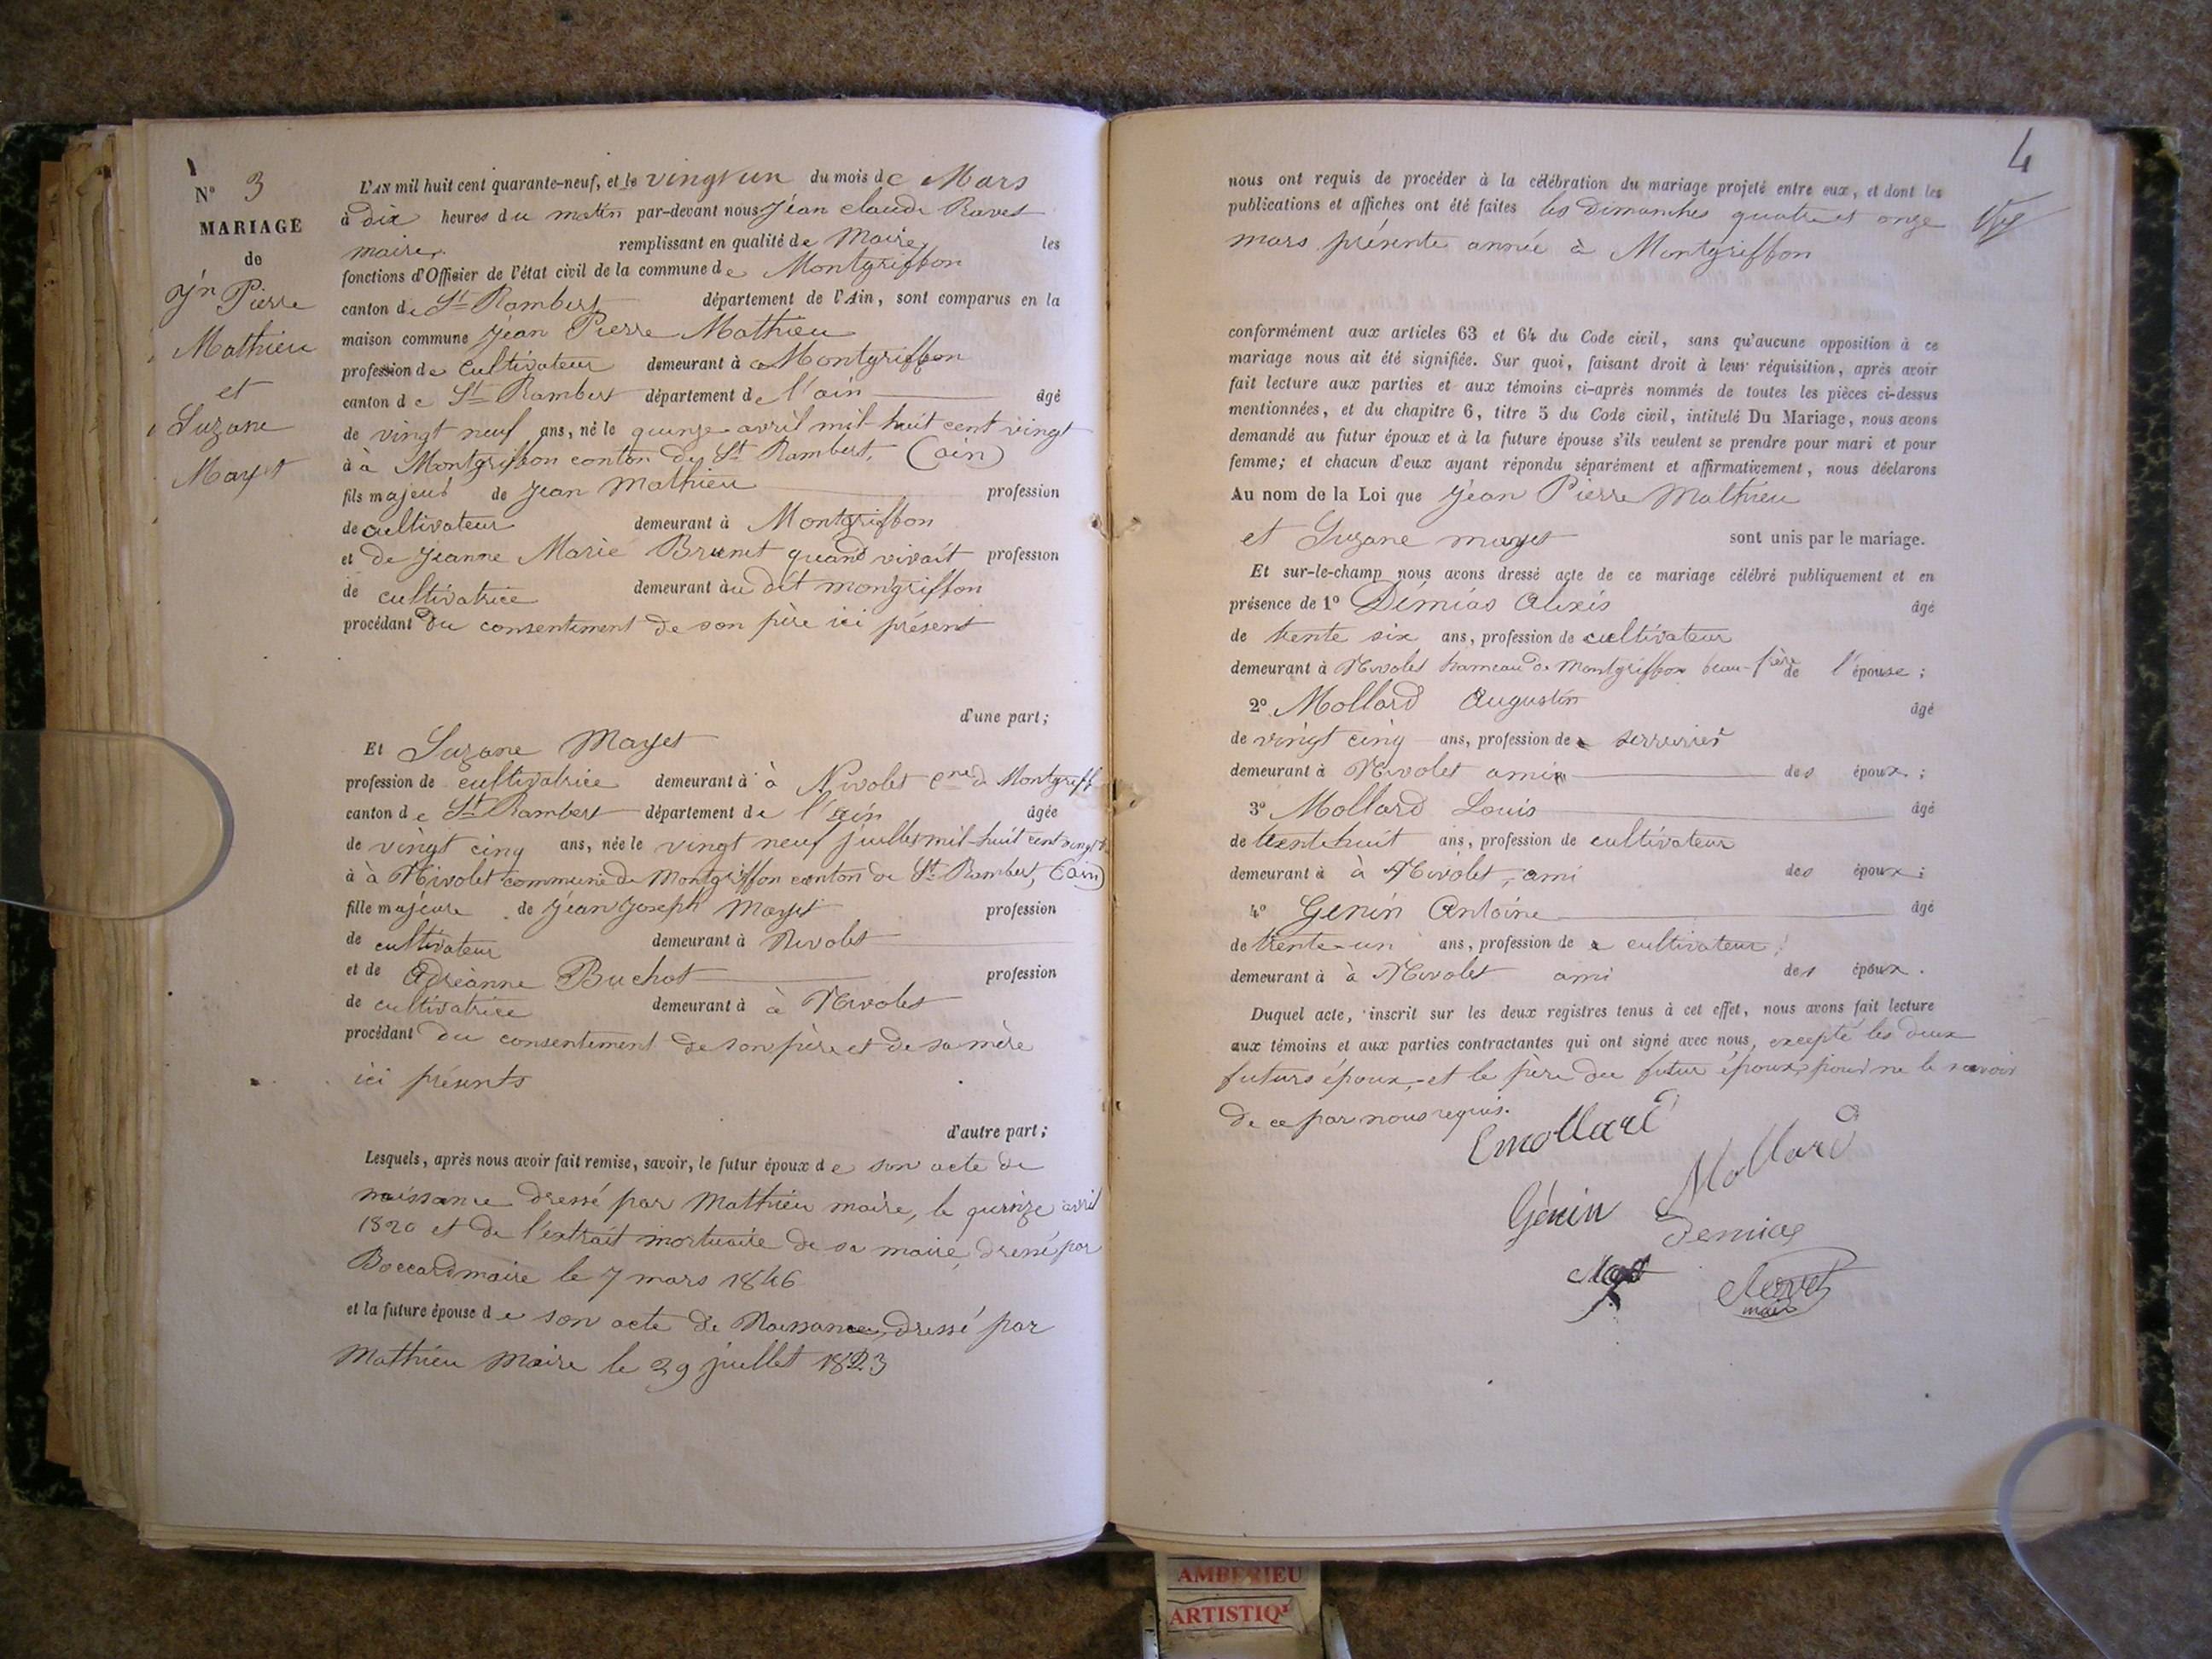 N° 3
MARIAGE
de
Jn Pierre
Mathieu
et
Suzane
Mayet
L'AN mil huit cent quarante-neuf, et le vingt un du mois de Mars
à dix heures du matin par-devant nous Jean Claude Ravet
maire remplissant en qualité de Maire les
fonctions d'Officier de l'état civil de la commune de Montgriffon
canton de St Rambert département de l'Ain, sont comparus en la
maison commune Jean Pierre Mathieu
profession de cultivateur demeurant à Montgriffon
canton de St Rambert département de l'ain âgé
de vingt neuf ans, né le quinze avril mil huit cent vingt
à à Montgriffon canton de St Rambert, (ain)
fils majeur de Jean Mathieu profession
de cultivateur demeurant à Montgriffon
et de Jeanne Marie Brunet quand vivait profession
de cultivatrice demeurant au dit montgriffon
procédant du consentement de son père ici présent
d'une part;
Et Suzane Mayet
profession de cultivatrice demeurant à à Nivolet cne de Montgriff
canton de St Rambert département de l'ain âgée
de vingt cinq ans, née le vingt neuf juillet mil-huit cent vingt
à à Nivolet commune de Montgriffon canton de St Rambert, (ain)
fille majeure de Jean Joseph Mayet profession
de cultivateur demeurant à Nivolet
et de Adréanne Buchot profession
de cultivatrice demeurant à à Nivolet
procédant du consentement de son père et de sa mère
ici présents
d'autre part;
Lesquels, après nous avoir fait remise, savoir, le futur époux de son acte de
naissance dressé par Mathieu maire, le quinze avril
1820 et de l'extrait mortuaire de sa maire, dressé par
Boccard maire le 7 mars 1846
et la future épouse de son acte de Naissance, dressé par
Mathieu Maire le 29 juillet 1823
4
nous ont requis de procéder à la célébration du mariage projeté entre eux, et dont les
publications et affiches ont été faites les Dimanches quatre et onze
mars présente année à Montgriffon
conformément aux articles 63 et 64 du Code civil, sans qu'aucune opposition à ce
mariage nous ait été signifiée. Sur quoi, faisant droit à leur réquisition, après avoir
fait lecture aux parties et aux témoins ci-après nommés de toutes les pièces ci-dessus
mentionnées, et du chapitre 6, titre 5 du Code civil, intitulé Du Mariage, nous avons
demandé au futur époux et à la future épouse s'ils veulent se prendre pour mari et pour
femme; et chacun d'eux ayant répondu séparément et affirmativement, nous déclarons
Au nom de la Loi que Jean Pierre Mathieu
et Suzane mayet sont unis par le mariage.
Et sur-le-champ nous avons dressé acte de ce mariage célébré publiquement et en
présence de 1° Démias Alexis âgé
de trente six ans, profession de cultivateur
demeurant à Nivolet hameau de Montgriffon beau-frère de l'épouse;
2° Mollard Augustin âgé
de vingt cinq ans, profession de serrurier
demeurant à Nivolet ami des époux;
3° Mollard Louis âgé
de trente huit ans, profession de cultivateur
demeurant à à Nivolet, ami des époux;
4° Genin Antoine âgé
de trente-un ans, profession de cultivateur
demeurant à à Nivolet ami des époux.
Duquel acte, inscrit sur les deux registres tenus à cet effet, nous avons fait lecture
aux témoins et aux parties contractantes qui ont signé avec nous, excepté les deux
futurs époux, et le père du futur époux, pour ne le savoir
de ce par nous requis.
Mollard
Mollard
Génin
Demias
Ravet
maire
AMBERIEU
ARTISTIQ